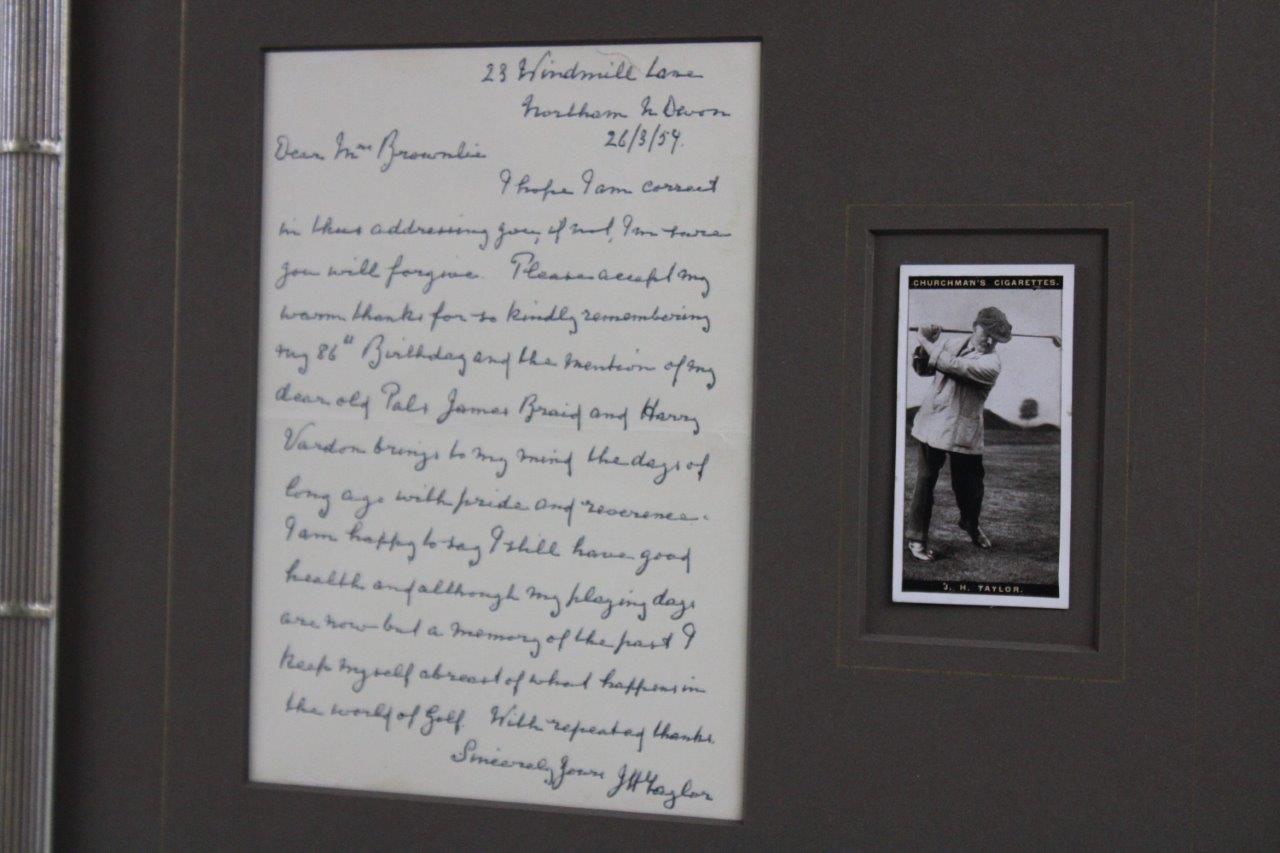 23 Windmill Lane
Northam N Devon
26/3/57.
Dear Mrs Brownlie
I hope I am correct
in thus addressing you, if not, I'm sure
you will forgive. Please accept my
warm thanks for so kindly remembering
my 86th Birthday and the mention of my
dear old Pals James Braid and Harry
Vardon brings to my mind the days of
long ago with pride and reverence.
I am happy to say I still have good
health and although my playing days
are now but a memory of the past I
keep myself abreast of what happens in
the world of Golf. With repeated thanks.
Sincerely Yours JH Taylor
CHURCHMAN'S CIGARETTES.
J. H. TAYLOR.